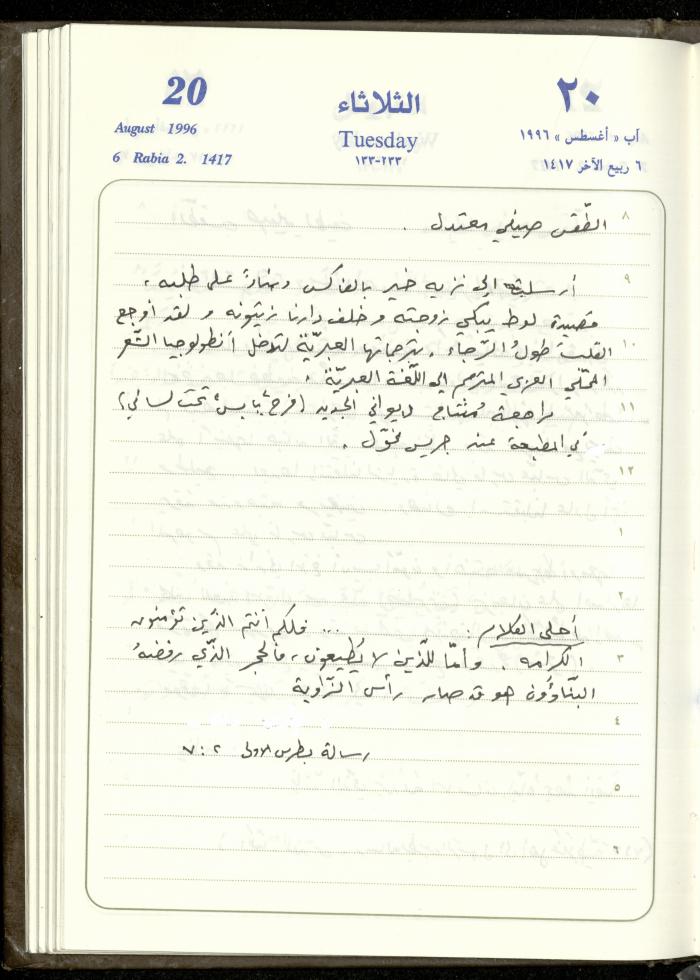 20
August 1996
6 Rabia 2. 1417
الثلاثاء
Tuesday
١٣٣-٢٣٣
٢٠
آب « أغسطس » ١٩٩٦
٦ ربيع الآخر ١٤١٧
٨
الطّقس صيفي معتدل .
٩
أرسلت إلى نزيه خير بالفاكس وبناءً على طلبه ،
قصيدة لوط يبكي زوجته وخلف دارنا زيتونة و لقد أوجع
١٠
القلبَ طولُ الرّجاء . بترجماتها العبريّة لتدخل أنطولوجيا الشّعر
المحلّي العربي المترجم إلى اللّغة العبريّة .
١١
مراجعة لديواني الجديد (فرحٌ يابسٌ تحت لساني)
في المطبعة عند جريس
١٢
١
٢
أحلى الكلام : ... فلكم أنتم الذين تؤمنون
٣
الكرامه . وأمّا للّذين لا يُطيعون ، فالحجر الذّي رفضهُ
البنّاؤون هو قد صار رأس الزّاوية
٤
رسالة بطرس الاولى ٢ : ٧
٥
٦